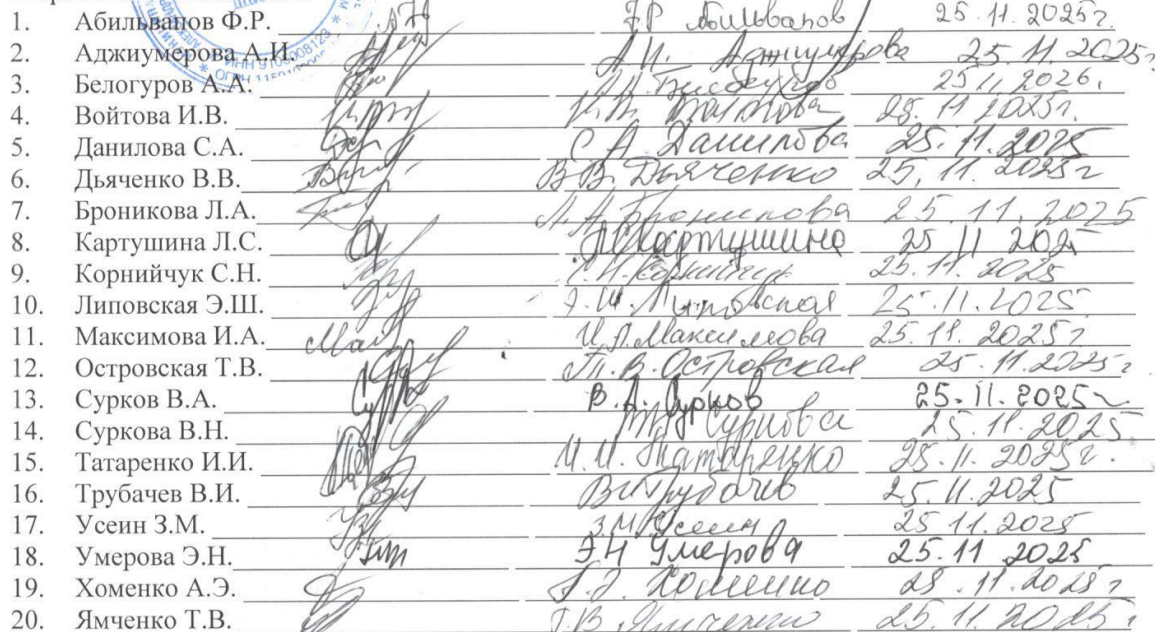 1. Абильвапов Ф.Р. Ф.Р Абильвапов 25.11.2025г.
2. Аджиумерова А.И. А.И. Аджиумерова 25.11.2025г
3. Белогуров А.А. 25.11.2026.
4. Войтова И.В. И.В. Войтова 25.11.2025г.
5. Данилова С.А. С А Данилова 25.11.2025
6. Дьяченко В.В. В.В. Дьяченко 25.11.2025г
7. Броникова Л.А. Л.А. Броникова 25.11.2025
8. Картушина Л.С. Картушина 25 11 2025
9. Корнийчук С.Н. С.Н. Корнийчук 25.11.2025
10. Липовская Э.Ш. Э.Ш. Липовская 25.11.2025
11. Максимова И.А. И.А. Максимова 25.11.2025г
12. Островская Т.В. Т.В. Островская 25.11.2025г
13. Сурков В.А. В.А. Сурков 25.11.2025г
14. Суркова В.Н. Суркова 25.11.2025
15. Татаренко И.И. И.И. Татаренко 25.11.2025г.
16. Трубачев В.И. В.И. Трубачев 25.11.2025
17. Усеин З.М. З.М Усеин 25 11.2025
18. Умерова Э.Н. Э Н Умерова 25.11 2025
19. Хоменко А.Э. А.Э. Хоменко 25.11.2025г
20. Ямченко Т.В. Т.В Ямченко 25.11.2025г